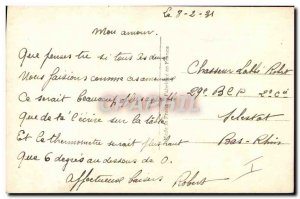 Le 8-2-31
Mon amour.
Que penses tu si tous les deux
Nous faisions comme ces amoureux
Ce serait beaucoup plus agréable
Que de te l'écire sur la table
Et le thermomètre serait plus haut
Que 6 degrés au dessous de 0.
Affectueux baisers
Robert
Chasseur Robert
29e B C P 2e Cie
Sélestat
Bas-Rhin
I